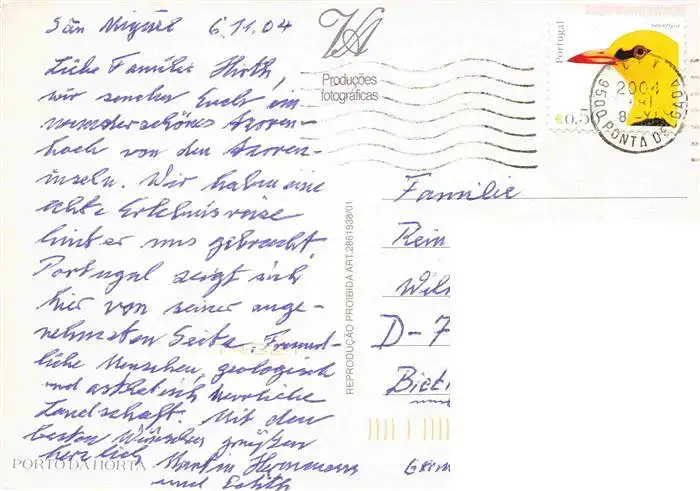 São Miguel 6.11.04
Liebe Familie Hirth,
wir senden Euch ein
wunderschönes Azoren-
hoch von den Azoren-
inseln. Wir haben eine
echte Erlebnisreise
hinter uns gebracht.
Portugal zeigt sich
hier von seiner ange-
nehmsten Seite. Freund-
liche Menschen, geologisch
und ästhetisch herrliche
Landschaft. Mit den
besten Wünschen grüßen
herzlich Martin Herrmann
und Edith
PORTO DA HORTA
VA
Produções
fotográficas
REPRODUÇÃO PROIBIDA ART.2861938/01
Portugal
€0,50
2004
9500 PONTA DELGADA
Familie
Rein
Wil
D-7
Biet